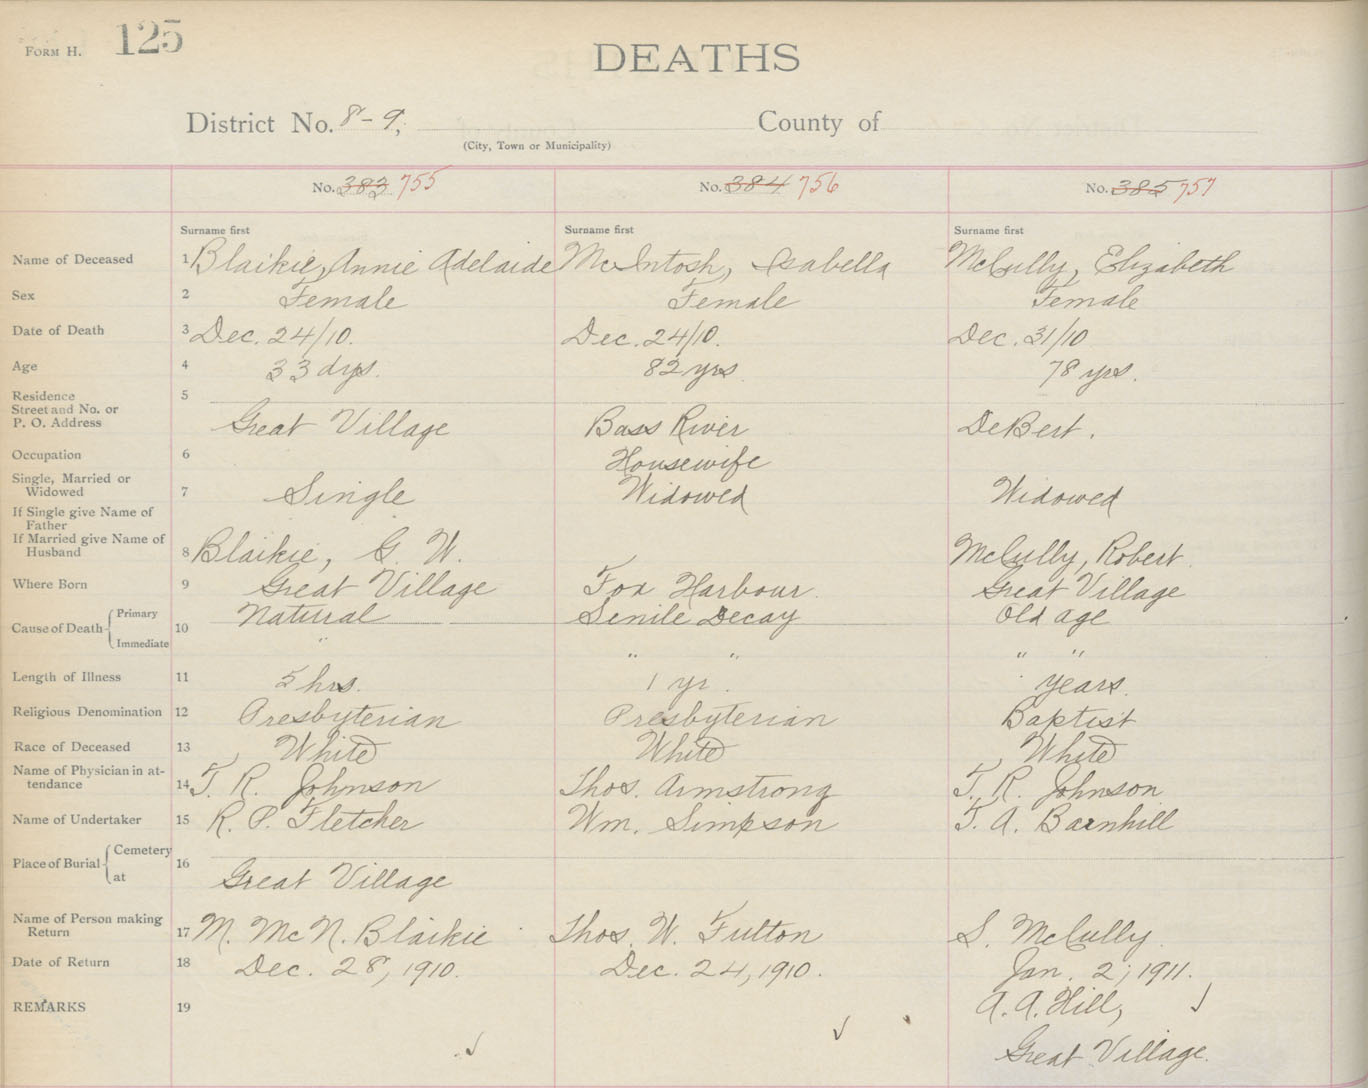 FORM H. 125
DEATHS
District No. 8-9, County of
(City, Town or Municipality)
No. 383 755 No. 384 756 No. 385 757
Surname first Surname first Surname first
Name of Deceased 1 Blaikie, Annie Adelaide McIntosh, Isabella McCully, Elizabeth
Sex 2 Female Female Female
Date of Death 3 Dec. 24/10. Dec. 24/10. Dec. 31/10
Age 4 33 dys. 82 yrs. 78 yrs.
Residence 5
Street and No. or
P. O. Address Great Village Bass River DeBert.
Occupation 6 Housewife
Single, Married or
Widowed 7 Single Widowed Widowed
If Single give Name of
Father
If Married give Name of
Husband 8 Blaikie, G. W. McCully, Robert
Where Born 9 Great Village Fox Harbour. Great Village
Primary Natural Senile Decay Old age
Cause of Death 10
Immediate " " " " "
Length of Illness 11 5 hrs. 1 yr. years.
Religious Denomination 12 Presbyterian Presbyterian Baptist
Race of Deceased 13 White White White
Name of Physician in at-
tendance 14 T. R. Johnson Thos. Armstrong T. R. Johnson
Name of Undertaker 15 R. P. Fletcher Wm. Simpson T. A. Barnhill
Cemetery
Place of Burial 16
at Great Village
Name of Person making
Return 17 M. McN. Blaikie Thos. W. Fulton S. McCully
Date of Return 18 Dec. 28, 1910. Dec. 24, 1910. Jan. 2, 1911.
REMARKS 19 A. A. Hill,
Great Village.